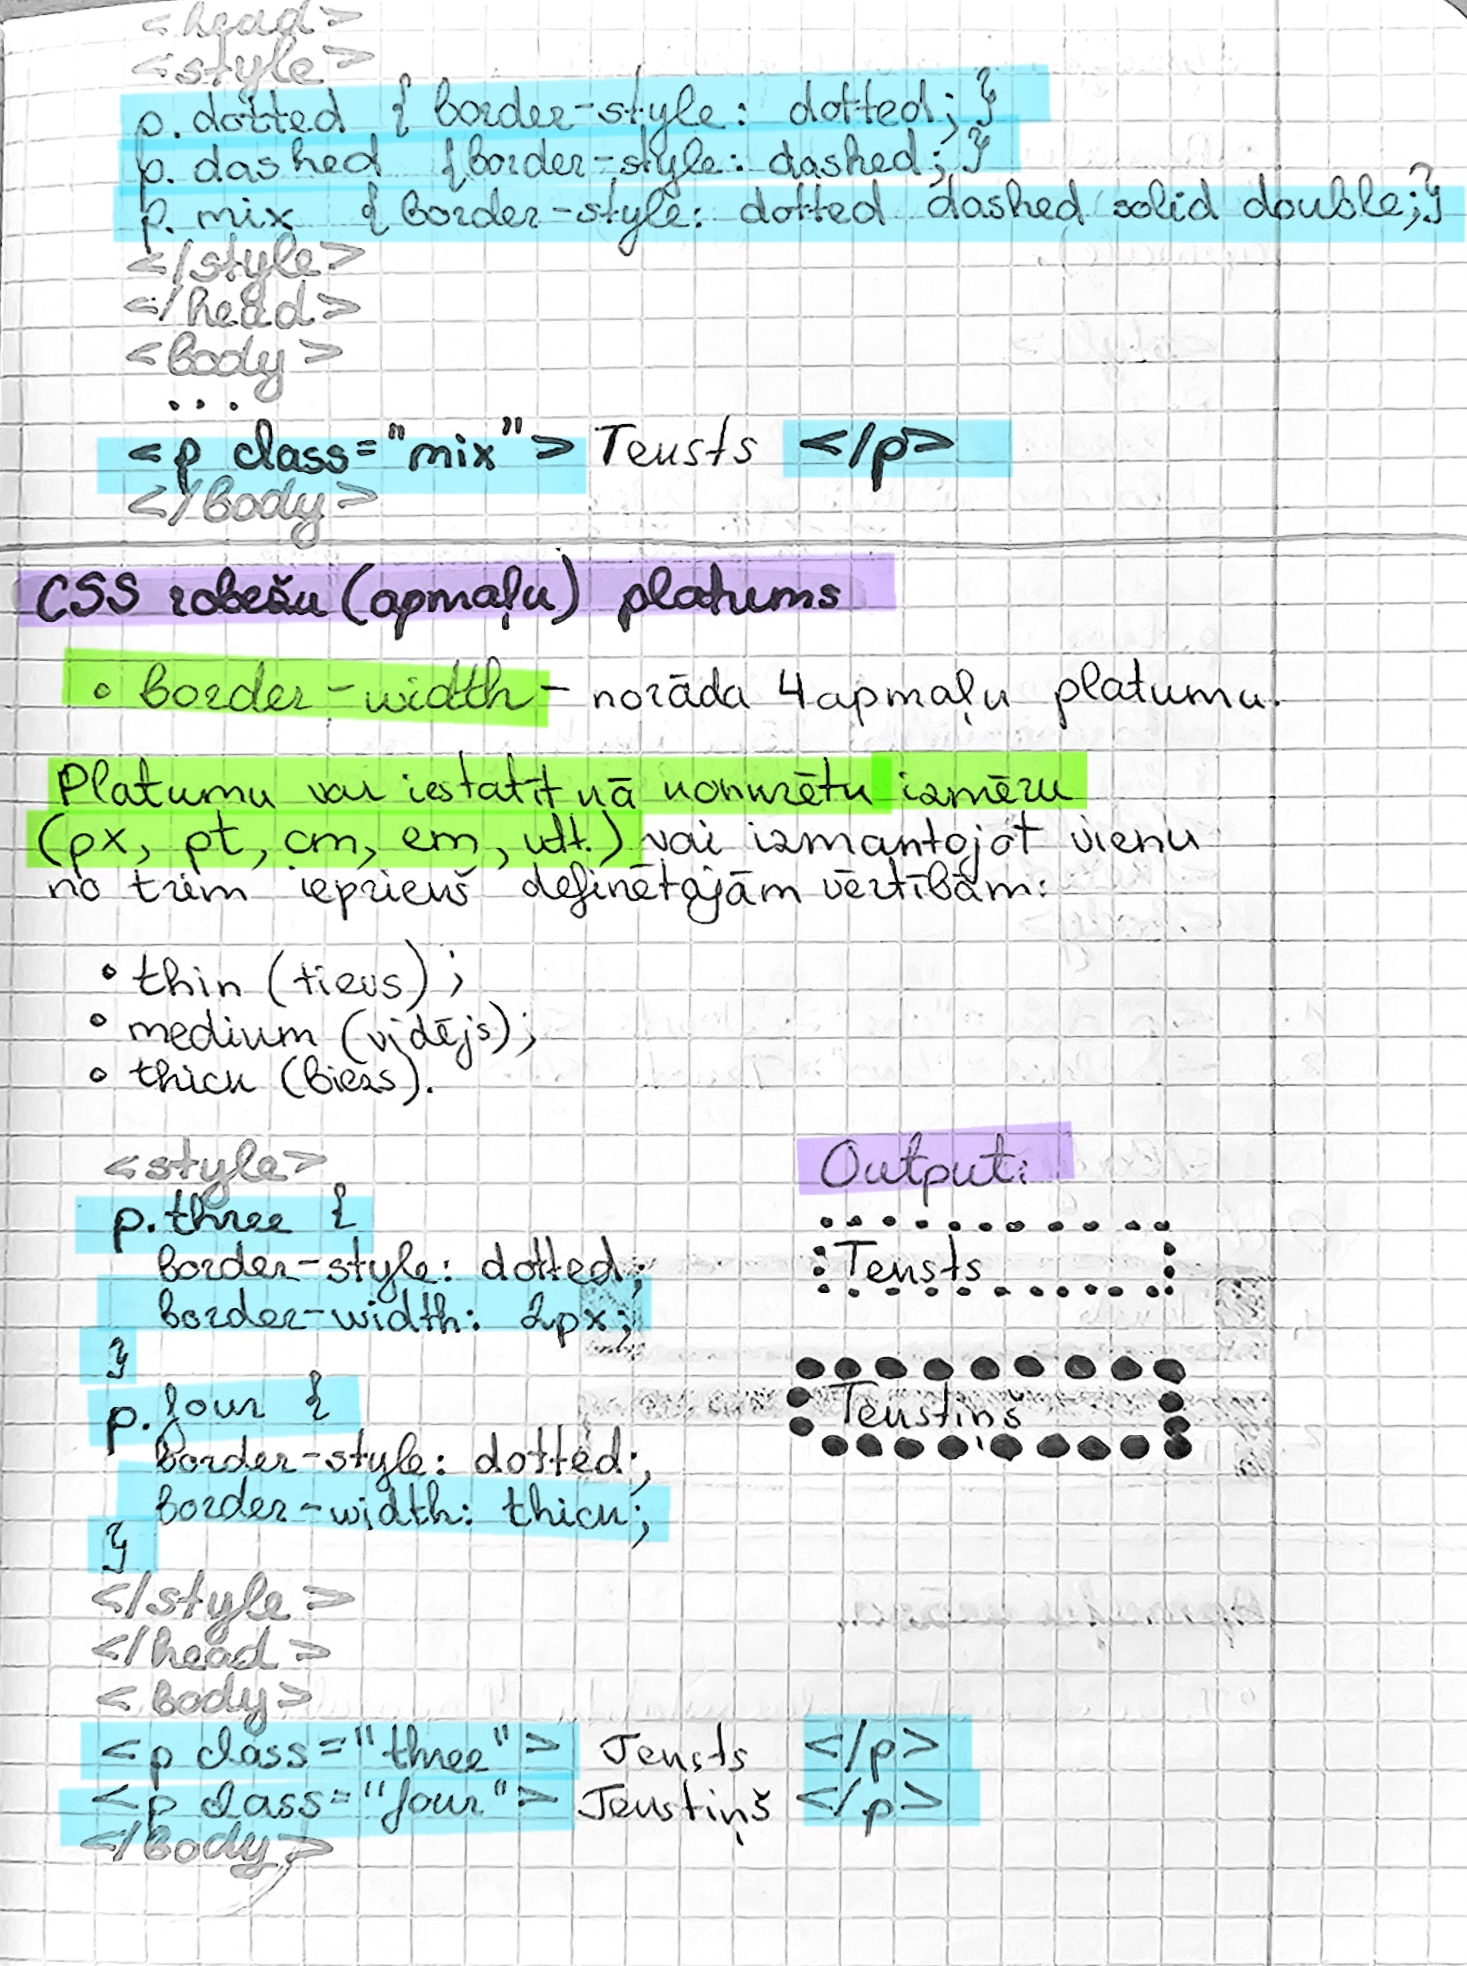 <head>
<style>
p.dotted { border-style: dotted; }
p.dashed { border-style: dashed; }
p.mix { border-style: dotted dashed solid double; }
</style>
</head>
<body>
...
<p class="mix"> Teksts </p>
</body>
CSS robežu (apmaļu) platums
• border-width - norāda 4 apmaļu platumu.
Platumu var iestatīt kā konkrētu izmēru
(px, pt, cm, em, utt.) vai izmantojot vienu
no trim iepriekš definētajām vērtībām:
• thin (tievs);
• medium (vidējs);
• thick (biezs).
<style>
p.three {
border-style: dotted;
border-width: 2px;
}
p.four {
border-style: dotted;
border-width: thick;
}
</style>
</head>
<body>
<p class="three"> Teksts </p>
<p class="four"> Tekstiņš </p>
</body>
Output:
Teksts
Tekstiņš